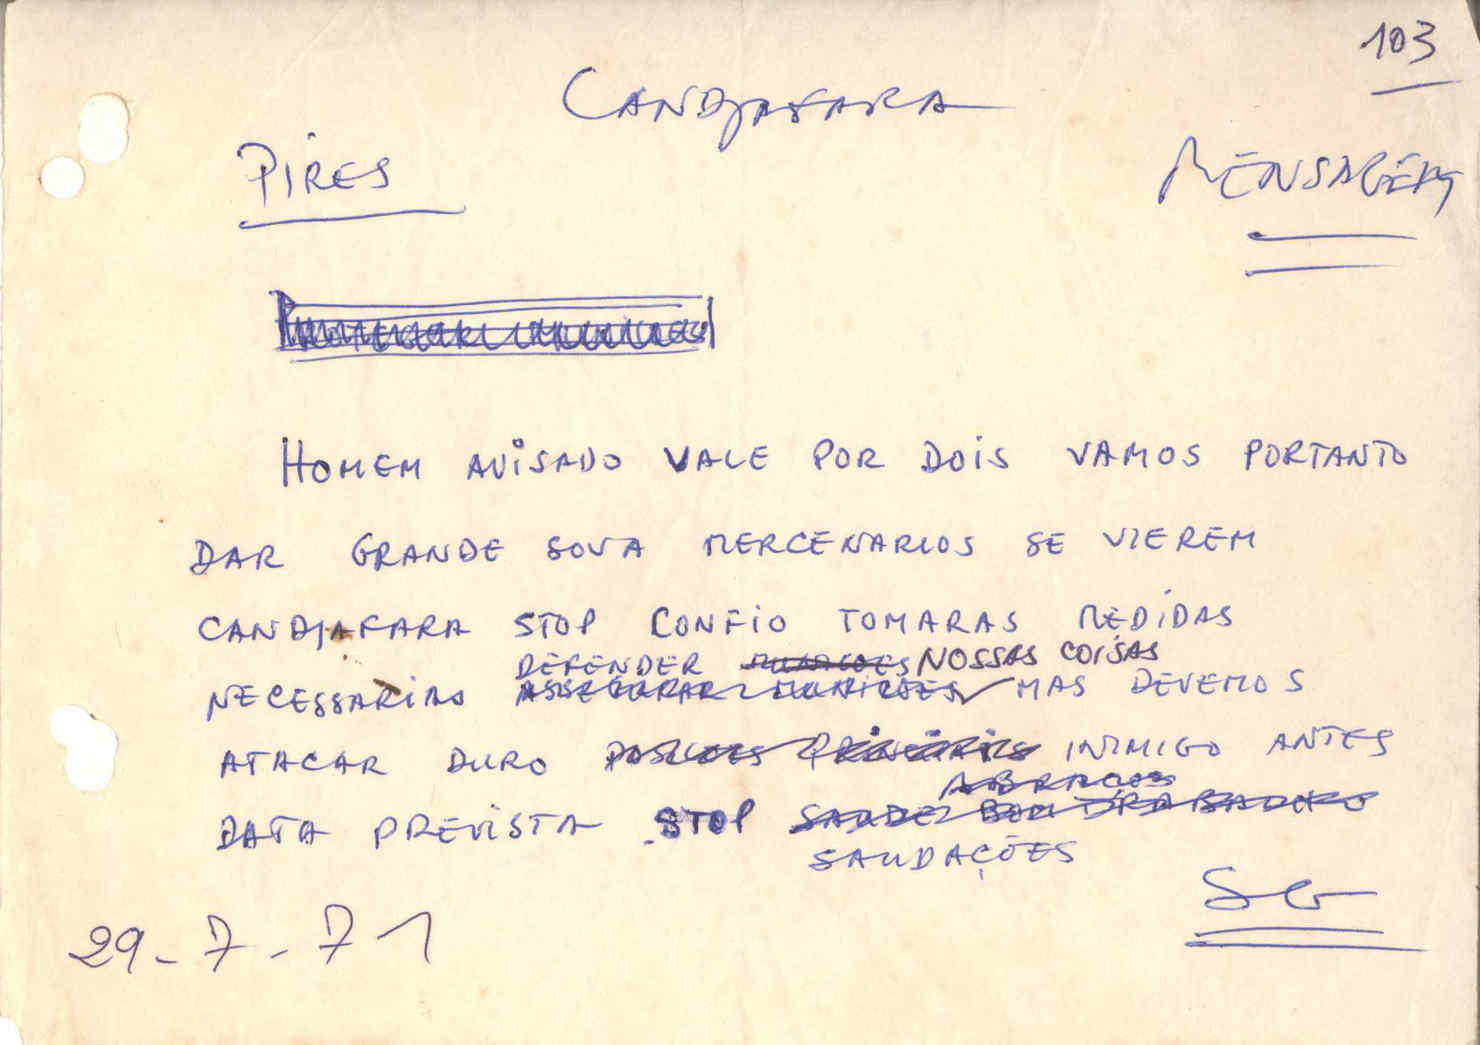 103
CANDJAFARA
PIRES
MENSAGEM
HOMEM AVISADO VALE POR DOIS VAMOS PORTANTO
DAR GRANDE SOVA MERCENARIOS SE VIEREM
CANDJAFARA STOP CONFIO TOMARAS MEDIDAS
DEFENDER NOSSAS COISAS
NECESSARIAS ASSEGURAR MUNIÇÕES MAS DEVEMOS
ATACAR DURO INIMIGO ANTES
ABRAÇOS
DATA PREVISTA STOP
SAUDAÇÕES
SG
29-7-71